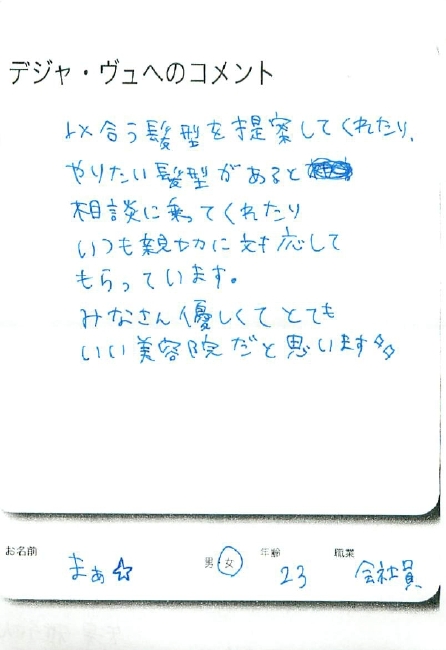 デジャ・ヴュへのコメント
似合う髪型を提案してくれたり、
やりたい髪型があると
相談に乗ってくれたり
いつも親切に対応して
もらっています。
みなさん優しくてとても
いい美容院だと思います☆☆
お名前 まぁ☆ 男・女 年齢 23 職業 会社員